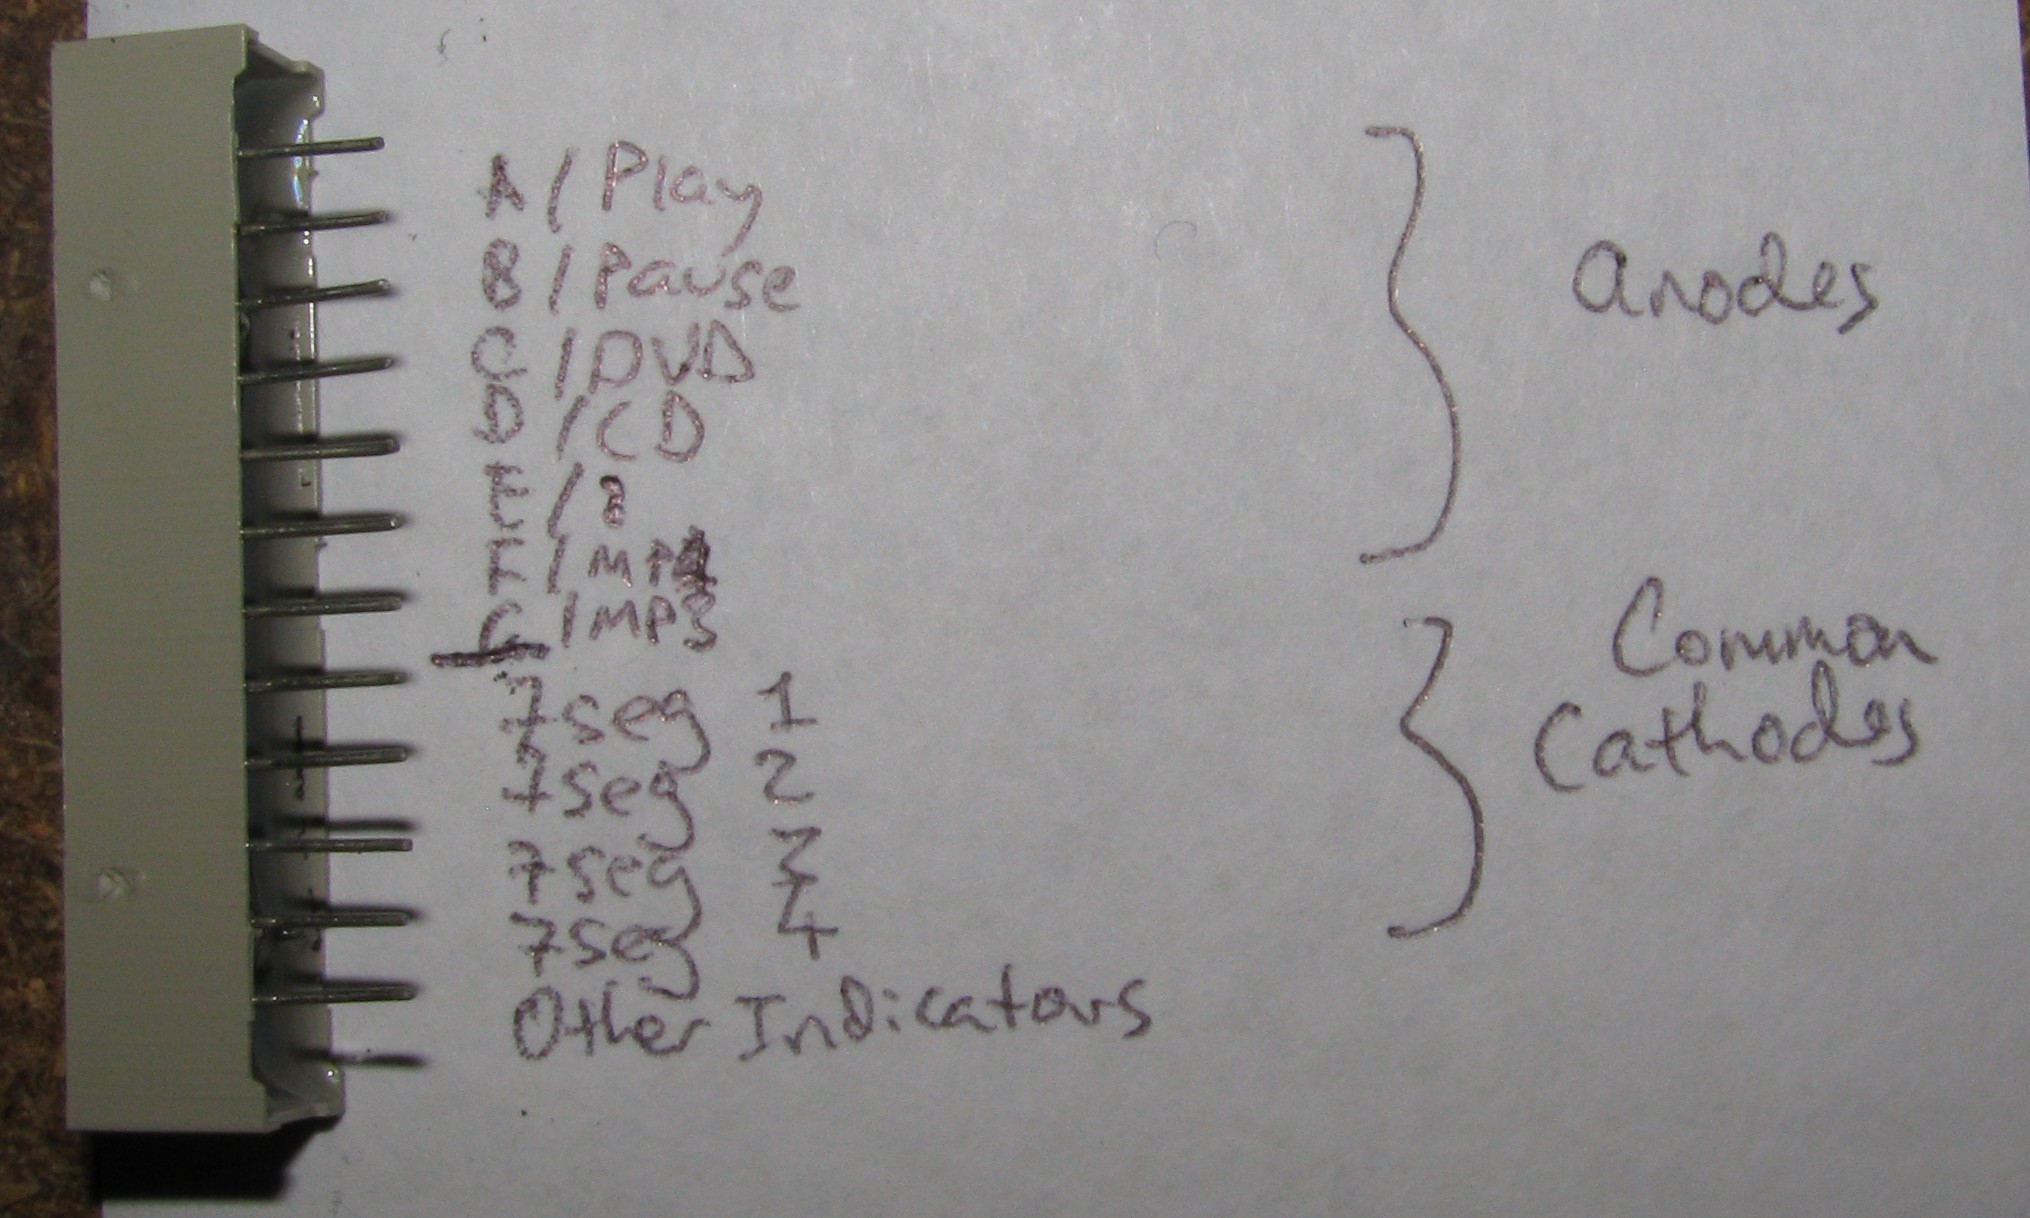 A / Play
B / Pause
C / DVD
D / CD
E /
F / MP4
G / MP3
7seg 1
7seg 2
7seg 3
7seg 4
Other Indicators
Anodes
Common
Cathodes